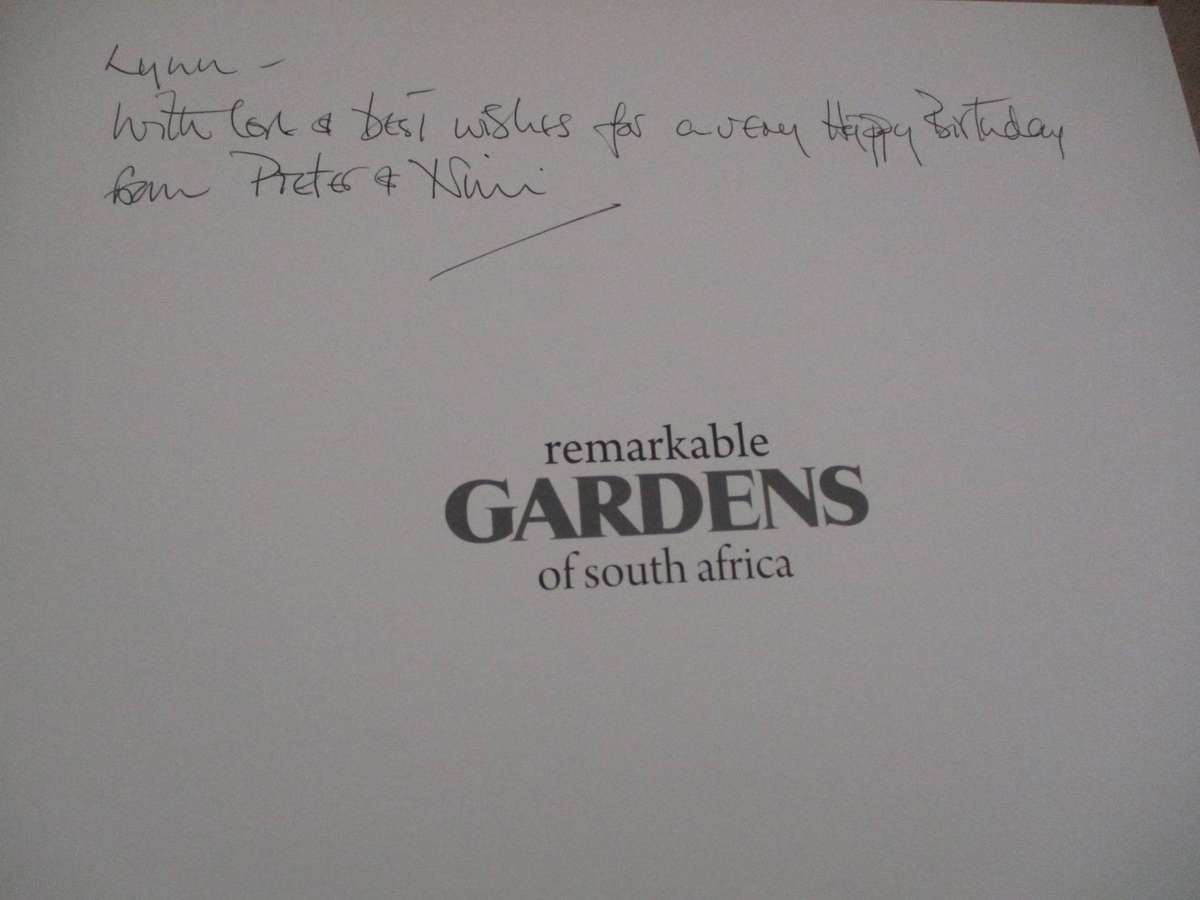 Lynn -
With love & best wishes for a very Happy Birthday
from Pieter &
remarkable
GARDENS
of south africa